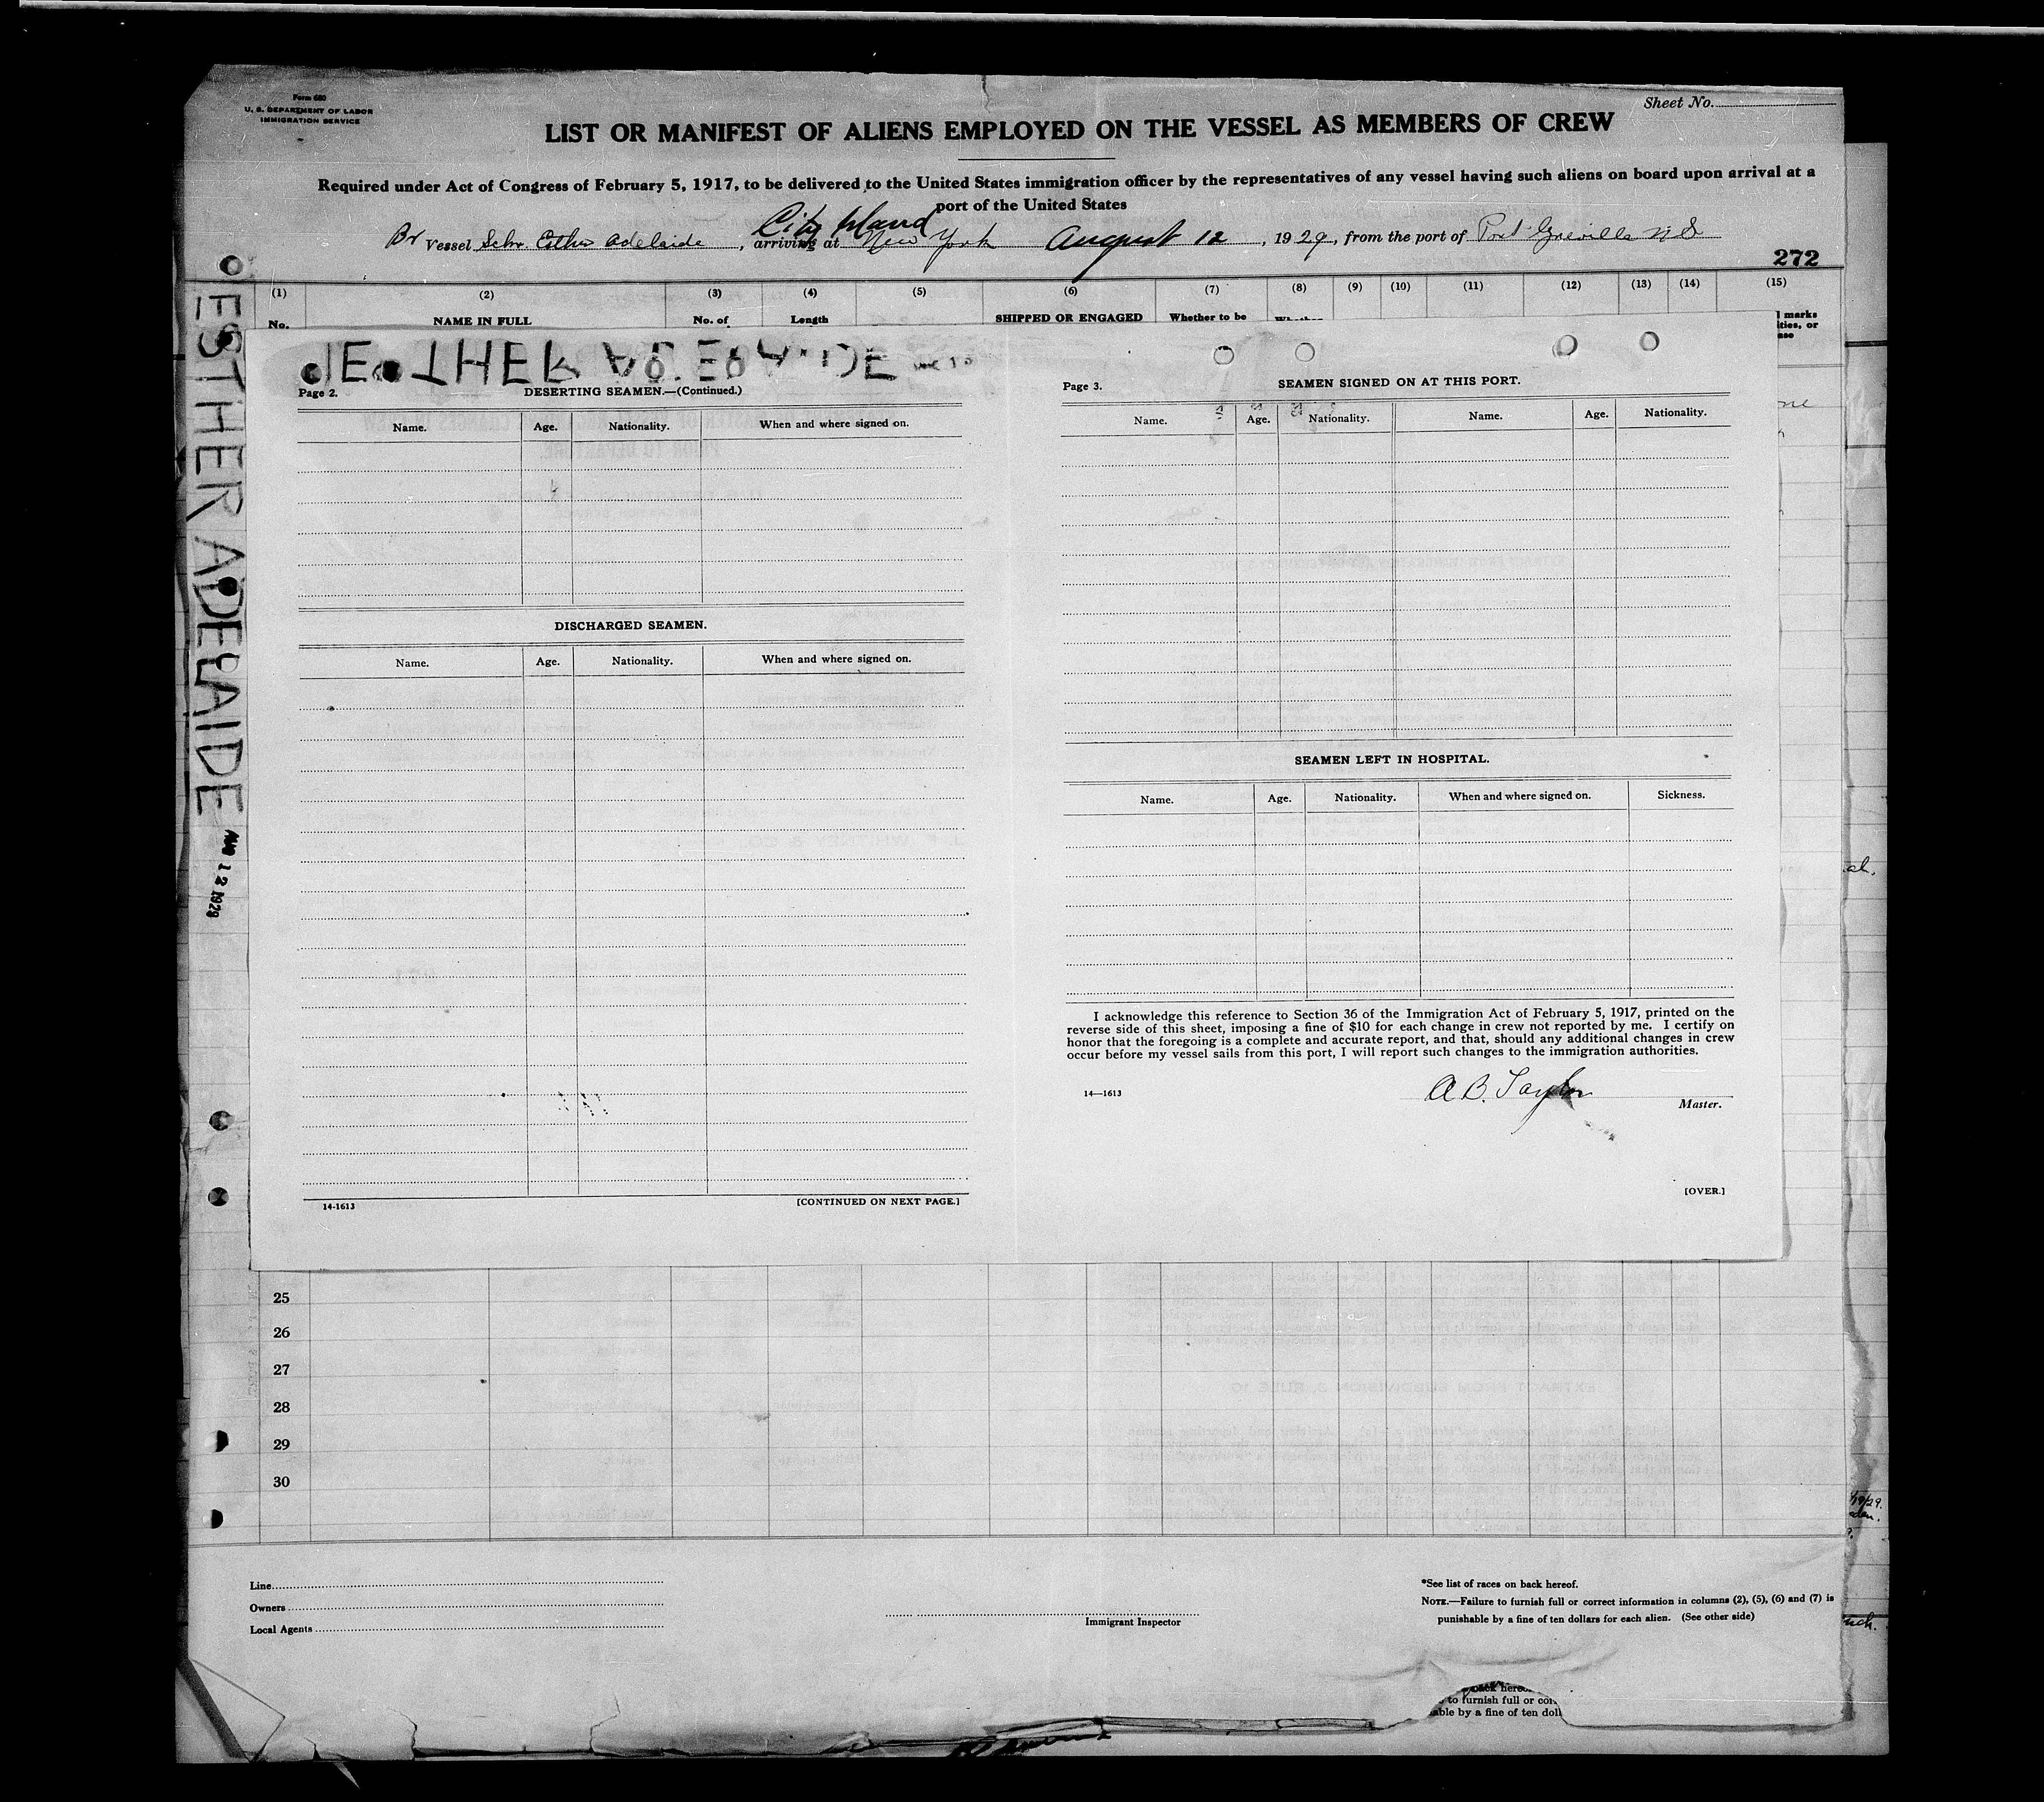 Form 680
U. S. DEPARTMENT OF LABOR
IMMIGRATION SERVICE
Sheet No.
LIST OR MANIFEST OF ALIENS EMPLOYED ON THE VESSEL AS MEMBERS OF CREW
Required under Act of Congress of February 5, 1917, to be delivered to the United States immigration officer by the representatives of any vessel having such aliens on board upon arrival at a
port of the United States
City Island
Br Vessel Schr. Esther Adelaide, arriving at New York August 12, 1929, from the port of Port Greville N S
272
(1) (2) (3) (4) (5) (6) (7) (8) (9) (10) (11) (12) (13) (14) (15)
No. NAME IN FULL No. of Length SHIPPED OR ENGAGED Whether to be
marks
ties, or
ase
ESTHER ADELAIDE
AUG 12 1929
Page 2.
DESERTING SEAMEN.—(Continued.)
Name. Age. Nationality. When and where signed on.
DISCHARGED SEAMEN.
Name. Age. Nationality. When and where signed on.
14-1613
[CONTINUED ON NEXT PAGE.]
Page 3.
SEAMEN SIGNED ON AT THIS PORT.
Name. Age. Nationality. Name. Age. Nationality.
SEAMEN LEFT IN HOSPITAL.
Name. Age. Nationality. When and where signed on. Sickness.
I acknowledge this reference to Section 36 of the Immigration Act of February 5, 1917, printed on the
reverse side of this sheet, imposing a fine of $10 for each change in crew not reported by me. I certify on
honor that the foregoing is a complete and accurate report, and that, should any additional changes in crew
occur before my vessel sails from this port, I will report such changes to the immigration authorities.
14—1613
A B. Taylor
Master.
[OVER.]
25
26
27
28
29
30
Line
Owners
Local Agents
Immigrant Inspector
*See list of races on back hereof.
NOTE.—Failure to furnish full or correct information in columns (2), (5), (6) and (7) is
punishable by a fine of ten dollars for each alien. (See other side)
back hereo
to furnish full or cor
able by a fine of ten doll